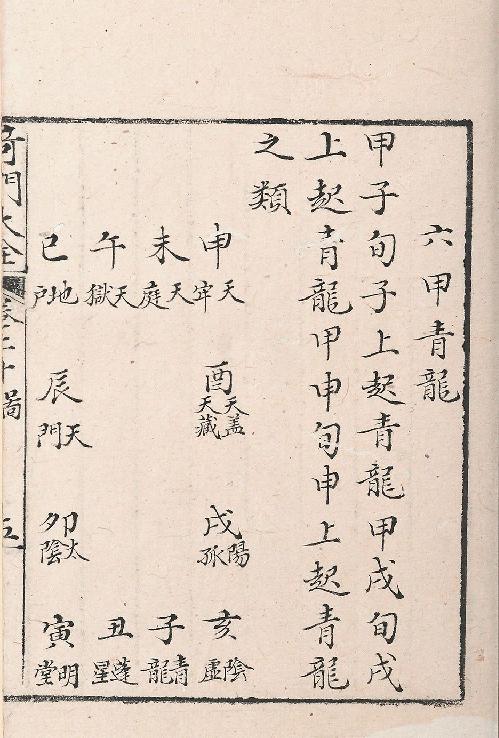 六甲青龍
甲子旬子上起青龍甲戌旬戌
上起青龍甲申旬申上起青龍
之類
申天牢 酉天盖天藏 戌陽孤 亥陰虛
未天庭 子青龍
午天獄 丑蓬星
巳地户 辰天門 卯太陰 寅明堂
奇門大全 圖 五